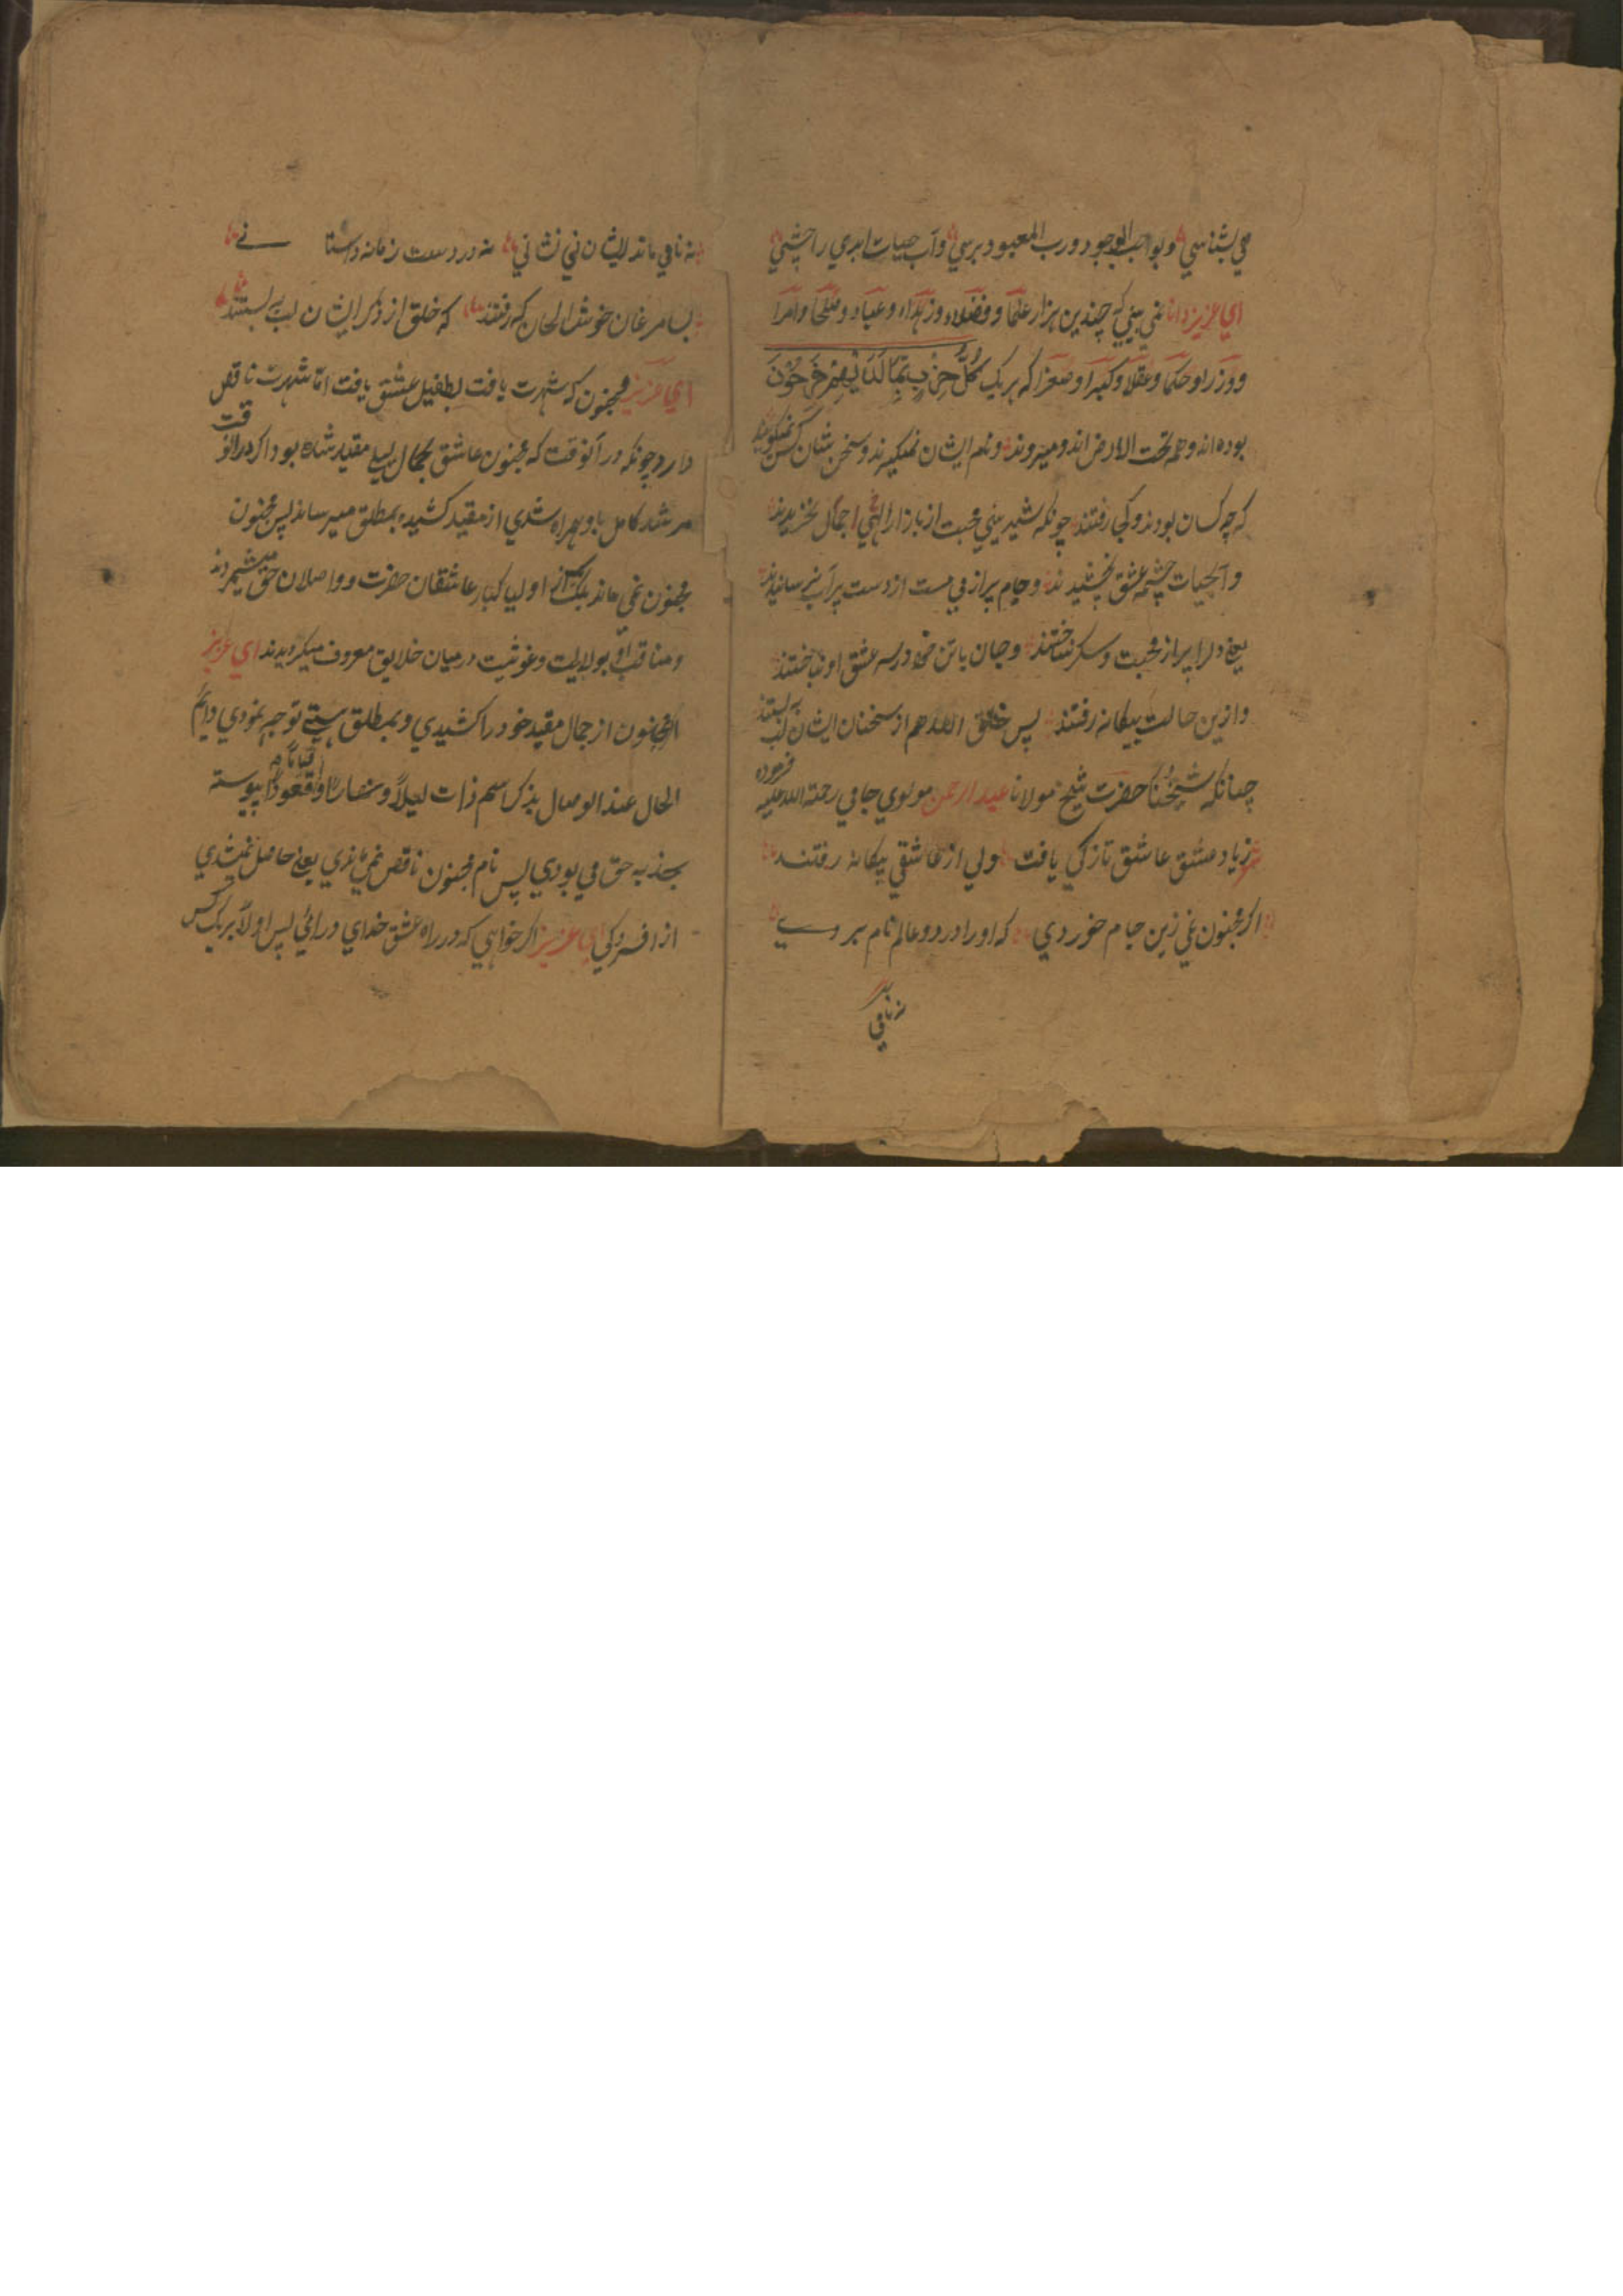 می بشناسی و بواجب الوجود و رب المعبود برسی وآب حیات ابدی را چشی
ای عزیز دانا نمی بینی که چندین هزار علما و فضلاء و زهداء و عباد و صلحا وامرا
و وزرا و حکما و عقلا و کبرا و صغرا که هر یک کُلُّ حِزْبٍ بِمَا لَدَیْهِمْ فَرِحُوْنَ
بوده اند و همه تحت الارض اند و میروند و نام ایشان نمیگیرند و سخن بشان کس نمیگویند
که چه کسان بودند و کجا رفتند چونکه شیرینی محبت از بازار الهی اجمال نخریدند
و آبحیات چشمه عشق نچشیدند و جام پر از می مست از دست پر آب نرسانیدند
یعنی دلرا پر از محبت و سکر نساختند و جان با تن خود در سه عشق او نباختند
و ازین حالت بیکانه رفتند پس خلق الله هم از سخنان ایشان لب بستند
چنانکه شیخنا حضرت شیخ مولانا عبد الرحمن مولوی جامی رحمة الله علیه فرموده
ز یاد عشق عاشق تازکی یافت ولی از عاشقی بیکانه رفتند
اکر مجنون نمی زین جام خوردی که او را در دو عالم نام بردے
نه نامی
نه نامی ماند ایشان نی نشانی نه در دست زمانه داستا نے
بسا مرغان خوش الحان که رفتند که خلق از ذکر ایشان لب به بستند
ای عزیز مجنون که شهرت یافت بطفیل عشق یافت اما شهرت ناقص
دارد چونکه در آنوقت که مجنون عاشق بجمال لیلی مقید شده بود اکر در انوقت
مرشد کامل با و همراه شدی از مقید کشیده بمطلق میرساند پس مجنون
مجنون نمی ماند بلک از اولیا کبار عاشقان حضرت و واصلان حق میشمردند
و مناقب او بولایت و غوثیت درمیان خلایق معروف میکردیدند ای عزیز
اکر مجنون از جمال مقید خود را کشیدی و بمطلق هستی توجه نمودی دایم
الحال عند الوصال بذکر اسم ذات لیلاً و نهارًا و قیامًا و قعودًا پیوسته
بجذبه حق می بودی پس نام مجنون ناقص نمی ماندی یعنی حاصل نمیشدی
از افسردکی ای عزیز اکر خواهی که در راه عشق خدای در ائی پس اولاً بر یک کس